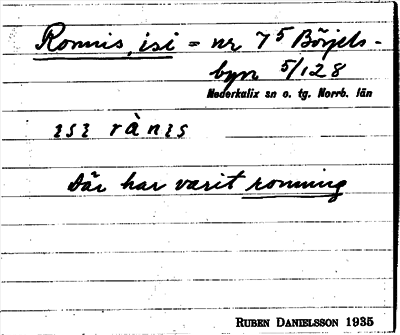 Ronnis, isi = nr 7⁵ Börjels-
byn 5/128
Nederkalix sn o. tg. Norrb. län
ɪsɪ rànɪs
Där har varit ronning
RUBEN DANIELSSON 1935